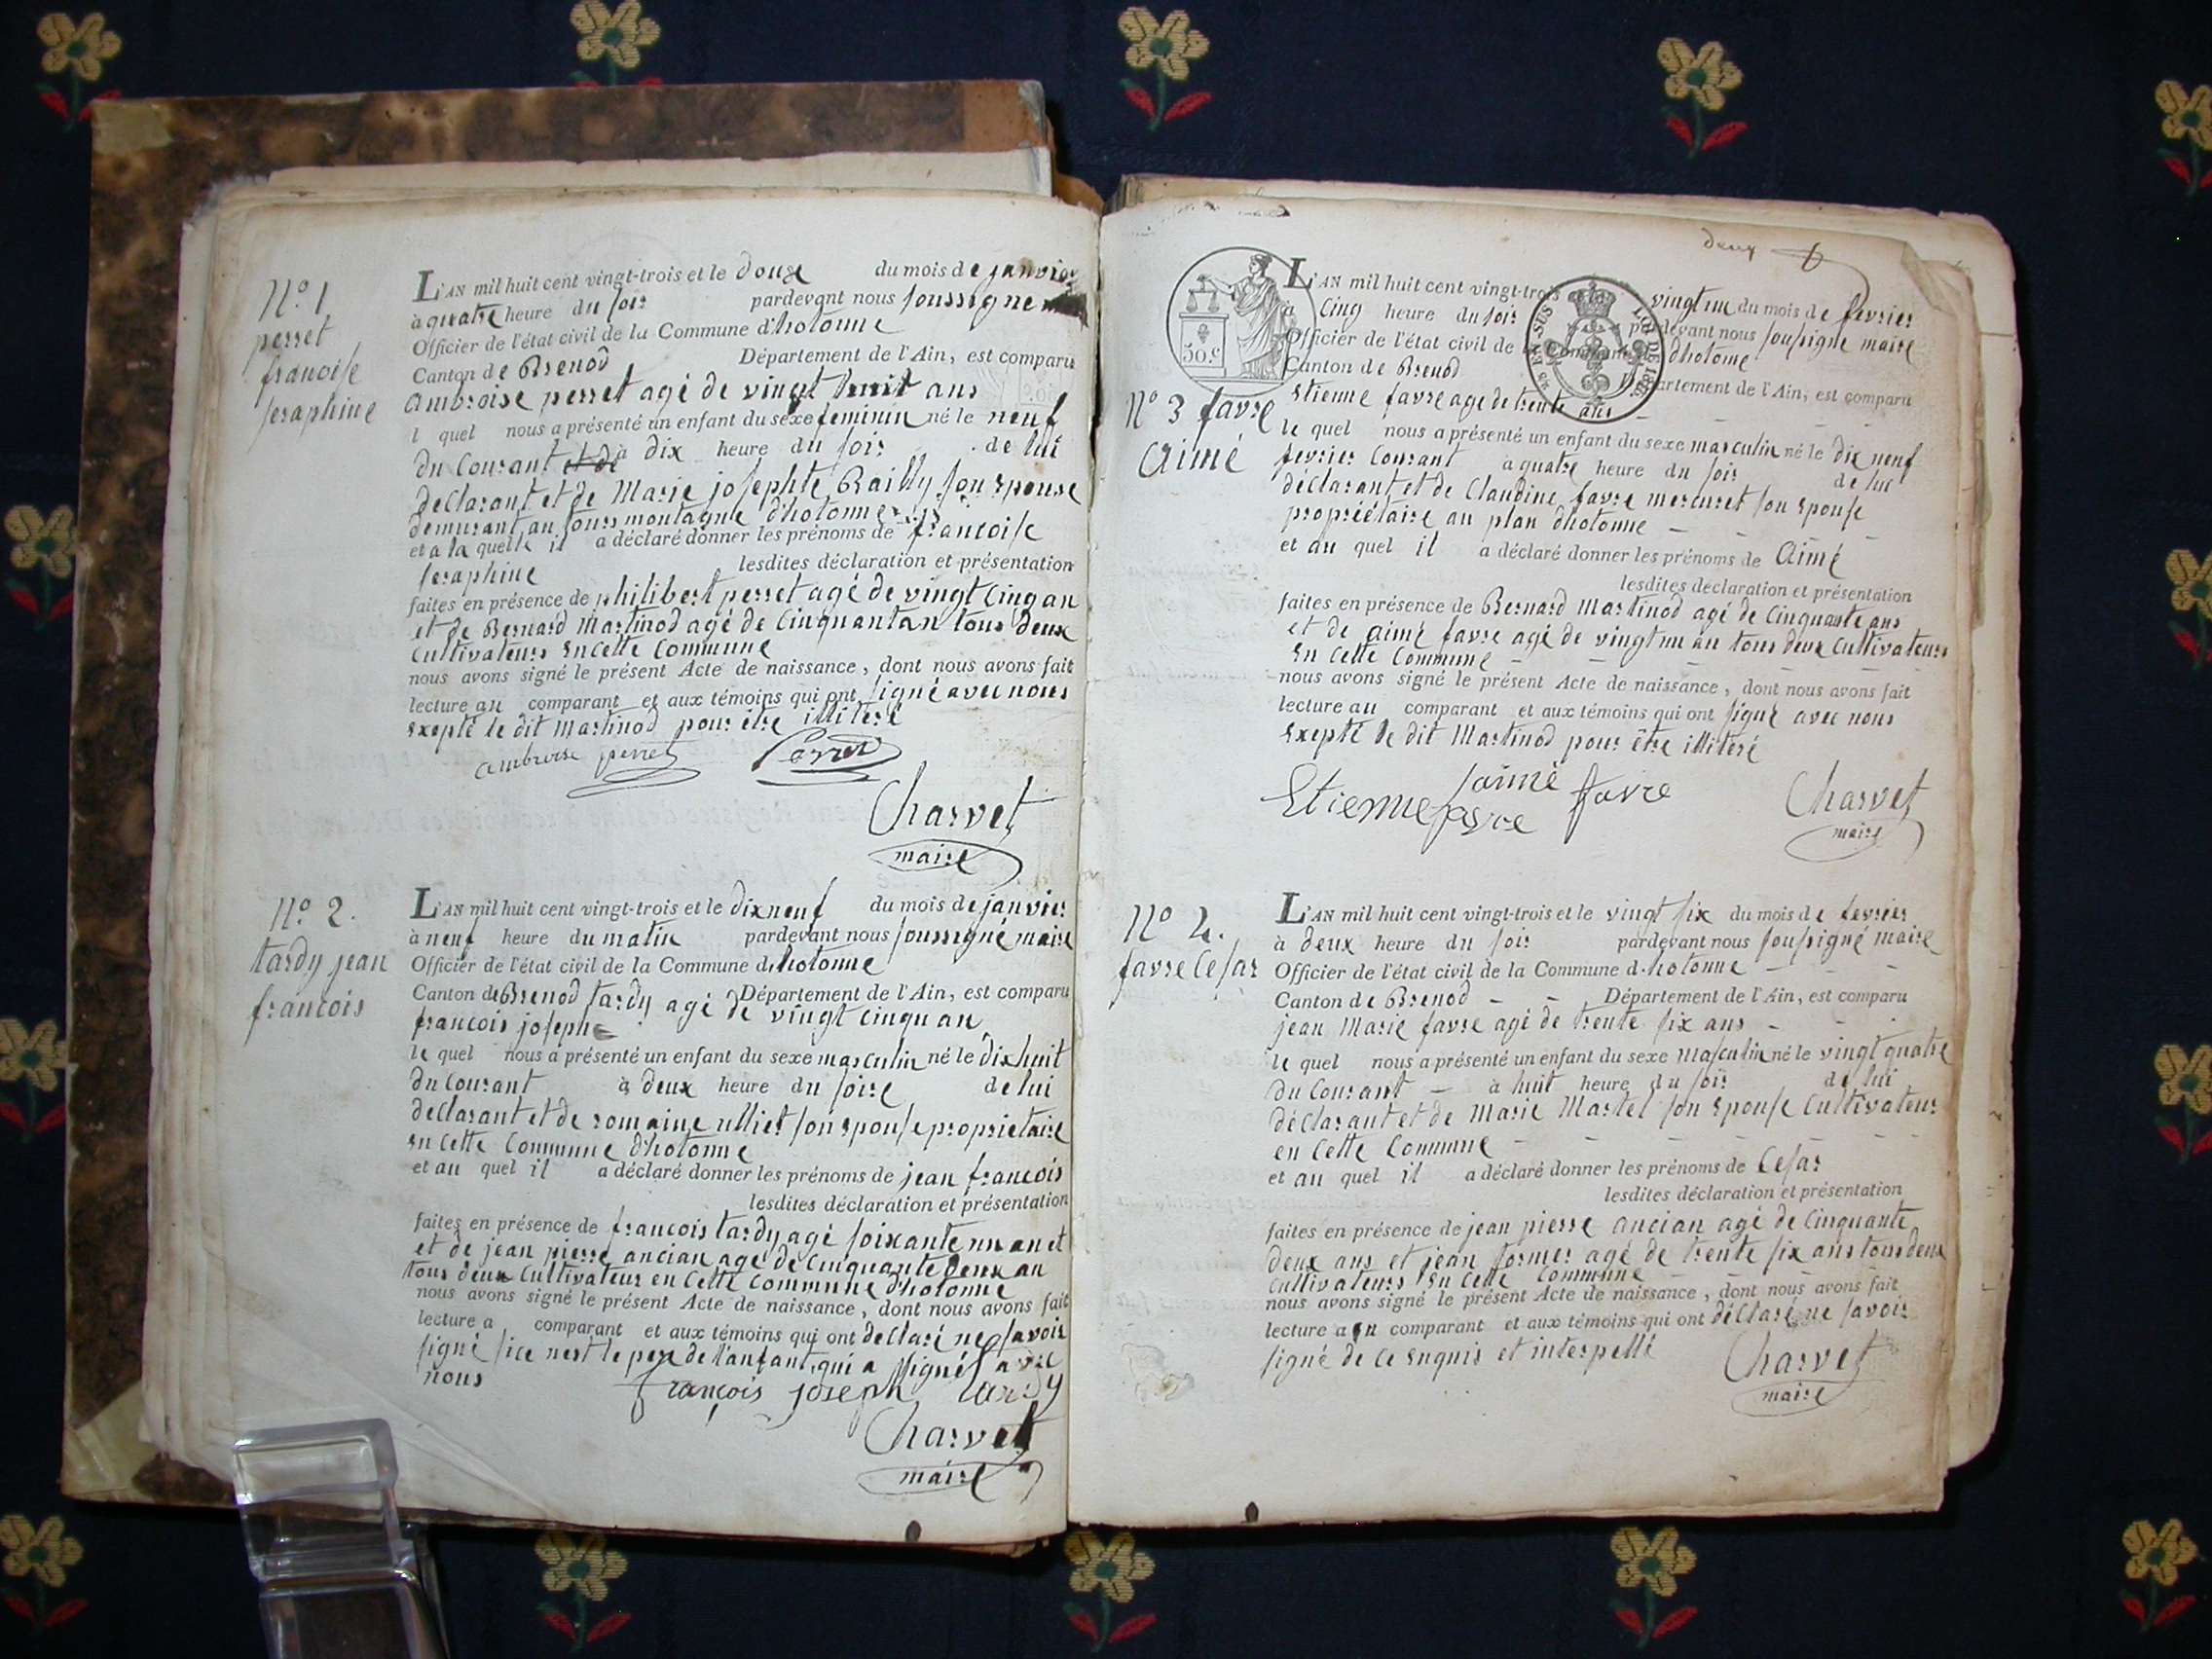 N.º 1
perret
francoise
seraphine
L'AN mil huit cent vingt-trois et le douze du mois de janvier
à quatre heure du soir pardevant nous soussigne
Officier de l'état civil de la Commune d'hotonne
Canton de Brenod Département de l'Ain, est comparu
ambroise perret agé de vingt huit ans
l quel nous a présenté un enfant du sexe feminin né le neuf
du Courant et de à dix heure du soir de lui
déclarant et de Marie josephte Bailly son epouse
demurant au sours montagne d'hotonne
et a la quelle il a déclaré donner les prénoms de francoise
seraphine lesdites déclaration et présentation
faites en présence de philibert perret agé de vingt Cinq an
et de Bernard Martinod agé de Cinquantan tous deux
Cultivateurs en Cette Commune
nous avons signé le présent Acte de naissance, dont nous avons fait
lecture au comparant et aux témoins qui ont signé avec nous
exepté le dit Martinod pour être illiteré
ambroise perret Perret
Charvet
maire
N.º 2.
tardy jean
francois
L'AN mil huit cent vingt-trois et le dixneuf du mois de janvier
à neuf heure du matin pardevant nous soussigné maire
Officier de l'état civil de la Commune d.hotonne
Canton de Brenod tardy agé de vingt cinqu an Département de l'Ain, est comparu
francois joseph
le quel nous a présenté un enfant du sexe masculin né le dixhuit
du Courant à deux heure du soire de lui
declarant et de romaine ulliet son epouse proprietaire
en cette Commune d'hotonne
et au quel il a déclaré donner les prénoms de jean francois
lesdites déclaration et présentation
faites en présence de francois tardy agé soixante un an et
et de jean pierre ancian agé de Cinquante deux an
tous deux Cultivateur en Cette Commune d'hotonne
nous avons signé le présent Acte de naissance, dont nous avons fait
lecture a comparant et aux témoins qui ont declaré ne savoir
signé si ce nest le pere de l'anfant, qui a signé avec
nous
François joseph tardy
Charvet
maire
deux
50.C
25 EN SUS LOI DE 1816
N.º 3 favre
Aimé
L'AN mil huit cent vingt-trois et le vingt un du mois de fevrier
à Cinq heure du soir pardevant nous soussigne maire
Officier de l'état civil de la Commune d'hotonne
Canton de Brenod Département de l'Ain, est comparu
Etienne favre age de trente ans
le quel nous a présenté un enfant du sexe masculin né le dix neuf
fevrier Courant à quatre heure du soir de lui
déclarant et de Claudine favre mercuret son epouse
propriétaire au plan d'hotonne
et au quel il a déclaré donner les prénoms de Aimé
lesdites déclaration et présentation
faites en présence de Bernard Martinod agé de Cinquante ans
et de aimé favre agé de vingt un an tous deux Cultivateurs
en Cette Commune
nous avons signé le présent Acte de naissance, dont nous avons fait
lecture au comparant et aux témoins qui ont signé avec nous
exepté le dit Martinod pour être illiteré
Etienne favre aimé favre Charvet
maire
Nº 4.
favre Cesar
L'AN mil huit cent vingt-trois et le vingt six du mois de fevrier
à deux heure du soir pardevant nous soussigné maire
Officier de l'état civil de la Commune d.hotonne
Canton de Brenod Département de l'Ain, est comparu
jean Marie favre agé de trente six ans
le quel nous a présenté un enfant du sexe Masculin né le vingt quatre
du Courant à huit heure du soir de lui
déclarant et de Marie Martel son epouse Cultivateur
en Cette Commune
et au quel il a déclaré donner les prénoms de Cesar
lesdites déclaration et présentation
faites en présence de jean pierre ancian agé de Cinquante
deux ans et jean former agé de trente six ans tous deux
Cultivateurs en Cette Commune
nous avons signé le présent Acte de naissance, dont nous avons fait
lecture au comparant et aux témoins qui ont déclaré ne savoir
signé de ce enquis et interpellé Charvet
maire